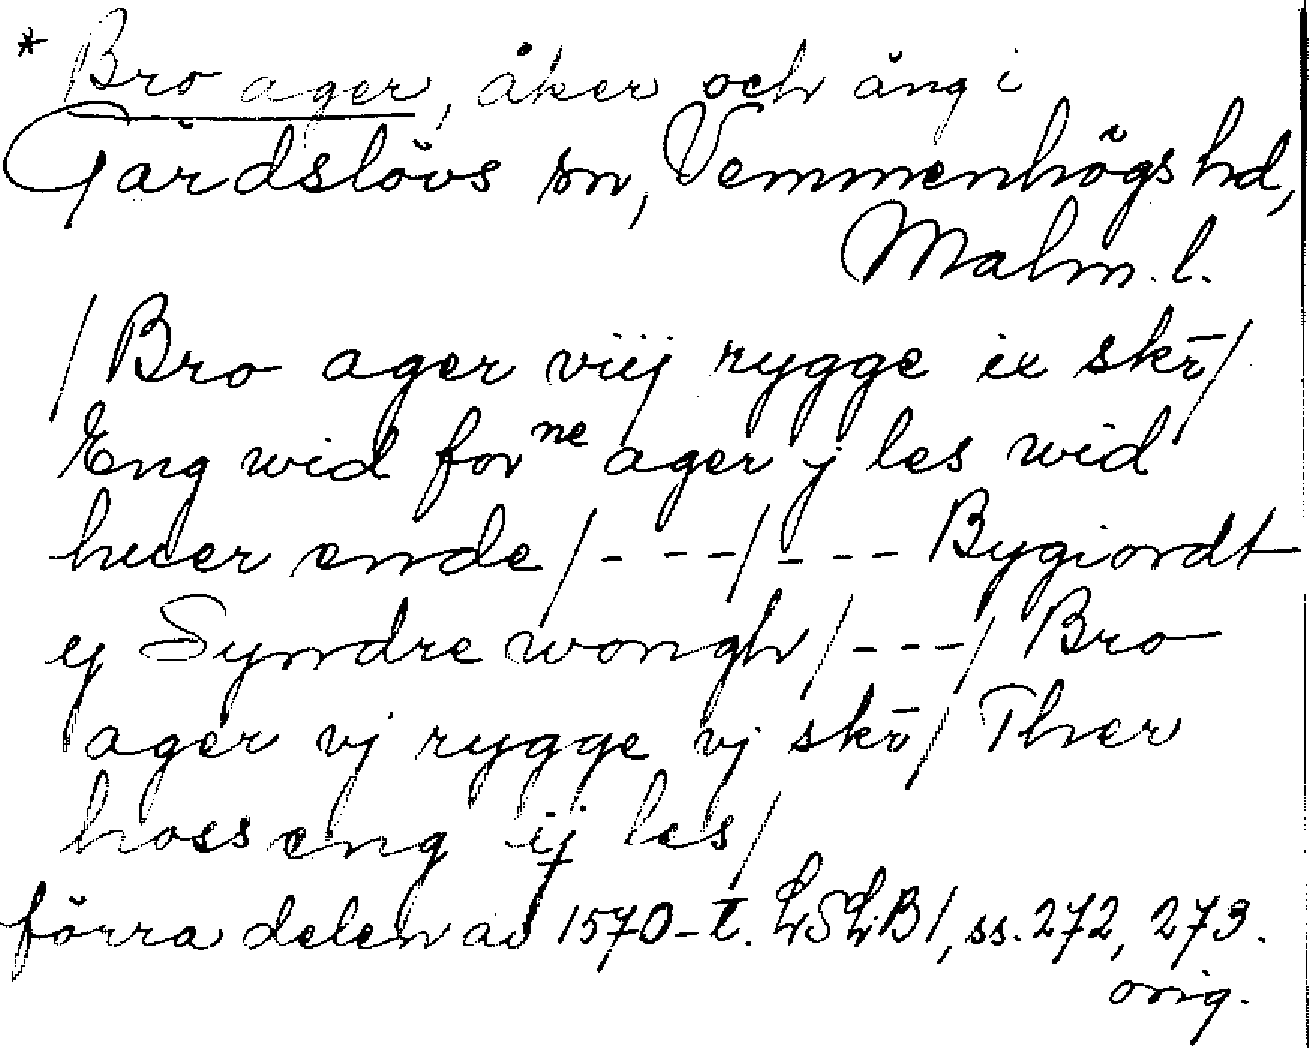 * Bro ager, åker och äng i
Gärdslövs sn, Vemmenhögs hd,
Malm. l.
/ Bro ager viij rygge ix skr̄ /
Eng wid forⁿᵉ ager j les wid
huer ende / - - - / - - - Bygiordt
ej Syndre wongh / - - - / Bro
ager vj rygge vj skr̄ / Ther
hoss eng ij les /
förra delen av 1570-t. LSLB 1, ss. 272, 273.
orig.